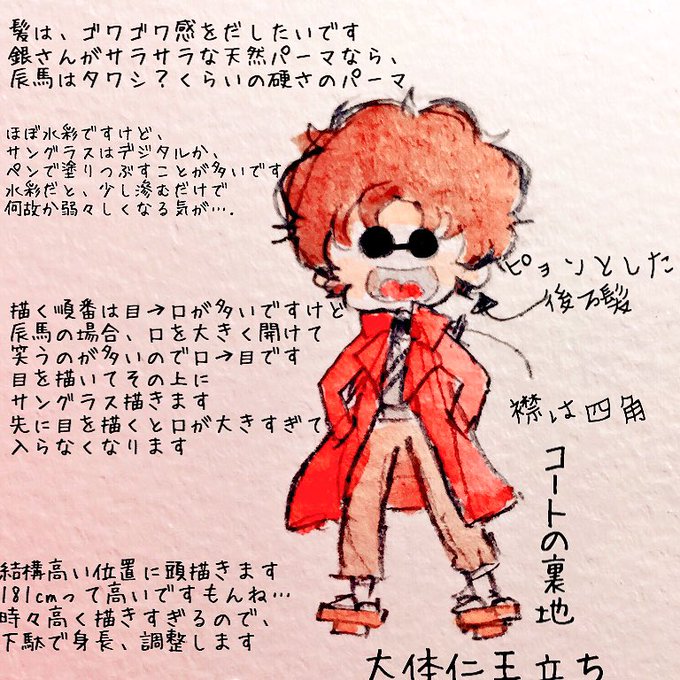 髪は、ゴワゴワ感をだしたいです
銀さんがサラサラな天然パーマなら、
辰馬はタワシ？くらいの硬さのパーマ
ほぼ水彩ですけど、
サングラスはデジタルか、
ペンで塗りつぶすことが多いです
水彩だと、少し滲むだけで
何故か弱々しくなる気が….
ピョンとした
後ろ髪
描く順番は目→口が多いですけど
辰馬の場合、口を大きく開けて
笑うのが多いので口→目です
目を描いてその上に
サングラス描きます
先に目を描くと口が大きすぎて
入らなくなります
襟は四角
コートの裏地
結構高い位置に頭描きます
181cmって高いですもんね…
時々高く描きすぎるので、
下駄で身長、調整します
大体仁王立ち